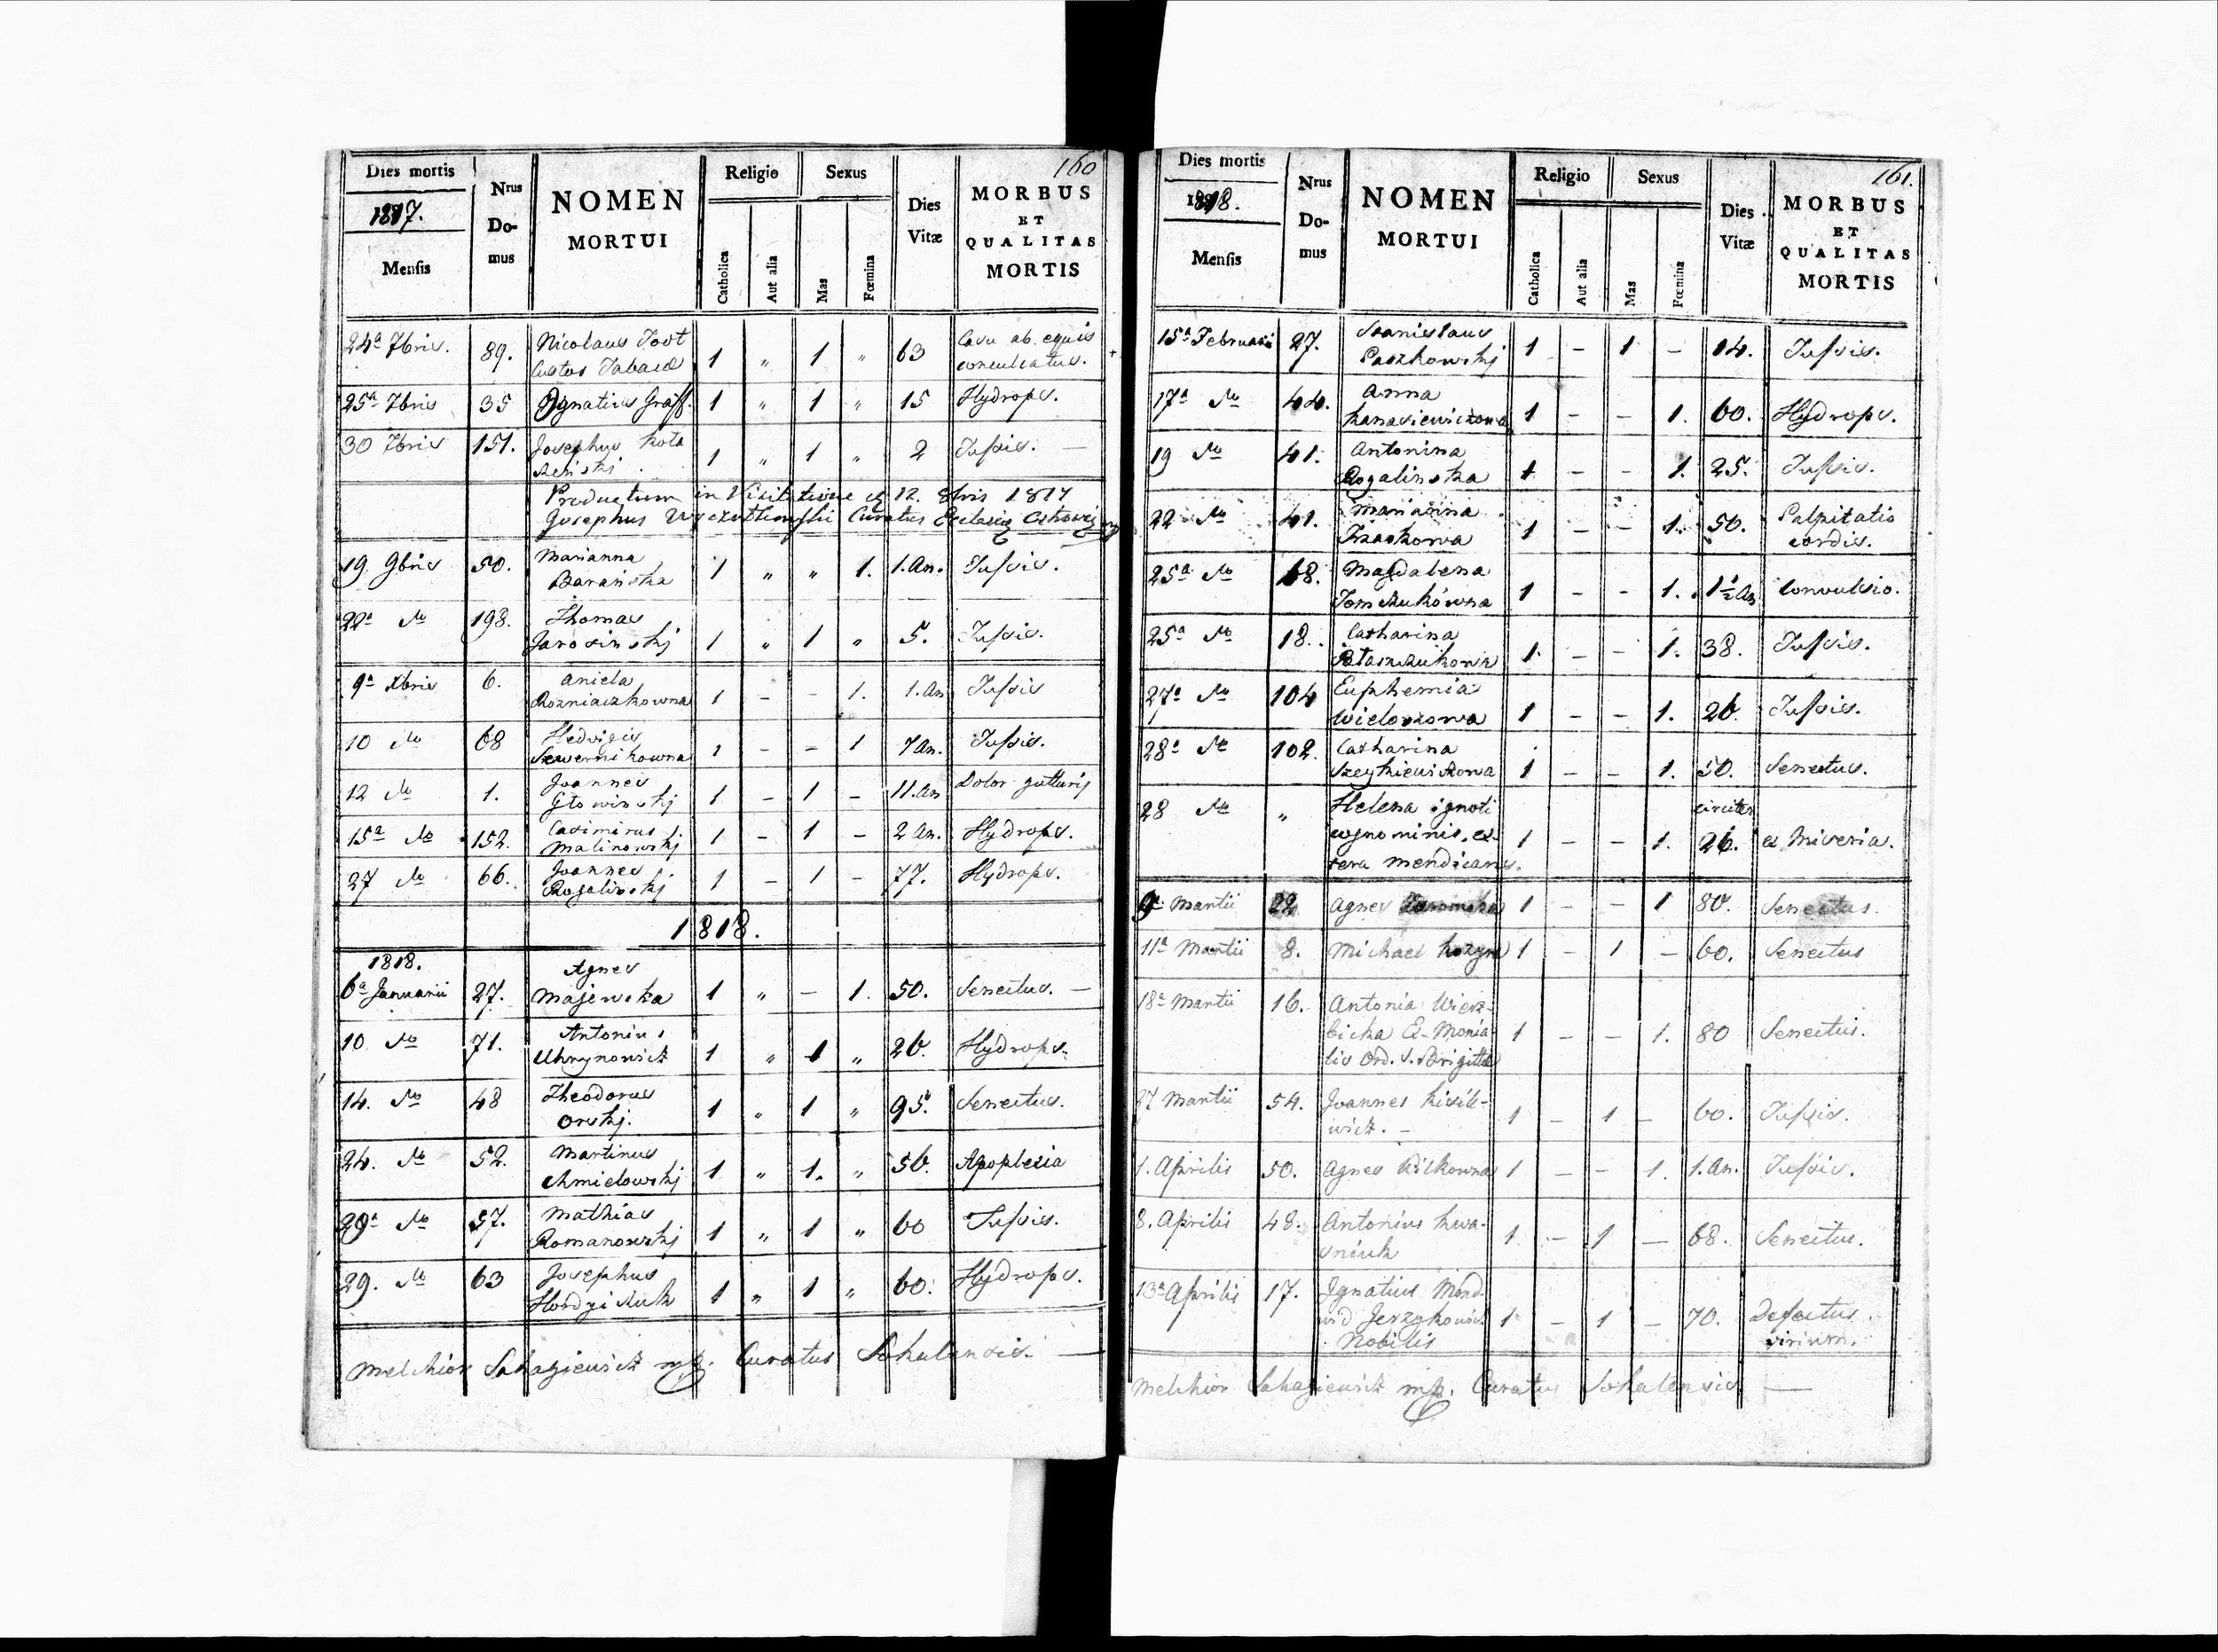 160
Dies mortis
1817.
Mensis
Nrus Domus
NOMEN MORTUI
Religio
Catholica
Aut alia
Sexus
Mas
Fœmina
Dies Vitæ
MORBUS ET QUALITAS MORTIS
24ª 7bris. 89. Nicolaus 1 " 1 " 63 Casu ab equis
Custos conculcatus.
25ª 7bris 35 Ignatius Graff. 1 " 1 " 15 Hydrops.
30 7bris 151. Josephus Kota 1 " 1 " 2 Tussis. —
Productum in Visitatione 12. 8bris 1817
Josephus Curatus
19 9bris 50. Marianna 1 " " 1. 1.An. Tussis.
Barańska
22ª do 198. Thomas 1 " 1 " 5. Tussis.
Jarosinskj
9ª Xbris 6. Aniela 1 - - 1. 1.An Tussis
Rozniaczkowna
10 do 68 Hedvigis 1 - - 1 7An. Tussis.
Szwernikowna
12 do 1. Joannes 1 - 1 - 11.An Dolor gutturis
Głowinskj
15ª do 152. Casimirus 1 - 1 - 2 An. Hydrops.
Malinowskj
27 do 66. Joannes 1 - 1 - 77. Hydrops.
Rogalinskj
1818.
1818. Agnes
6ª Januarii 27. Majewska 1 " - 1. 50. Senectus. —
10 do 71. Antonius 1 " 1 " 26. Hydrops.
Uhrynowicz
14. do 48 Theodorus 1 " 1 " 95. Senectus.
Orskj.
24. do 52. Martinus 1 " 1. " 56. Apoplexia
Chmielowskj
29ª do 57. Mathias 1 " 1 " 60 Tussis.
Romanowskj
29. do 63 Josephus 1 " 1 " 60. Hydrops.
Hordziczuk
Melchior Sahagiewicz mp. Curatus Sokalensis. —
161.
Dies mortis
1818.
Mensis
Nrus Domus
NOMEN MORTUI
Religio
Catholica
Aut alia
Sexus
Mas
Fœmina
Dies Vitæ
MORBUS ET QUALITAS MORTIS
15ª Februarii 27. Stanislaus 1 - 1 - 14. Tussis.
Paszkowskj
17ª do 44. Anna 1 - - 1. 60. Hydrops.
Kanasiewiczowa
19 do 41. Antonina 1 - - 1. 25. Tussis.
Rogalinska
22 do 41. Marianna 1 - - 1. 50. Palpitatio
cordis.
25ª do 68. Magdalena 1 - - 1. 1½ An Convulsio.
Tomczukówna
25ª do 18. Catharina 1. - - 1. 38. Tussis.
27ª do 104 Euphemia 1 - - 1. 26. Tussis.
28ª do 102. Catharina 1 - - 1. 50. Senectus.
28 do " Helena ignoti circiter
cognominis, ex- 1 - - 1. 26. ex Miseria.
tera mendicans.
9ª Martii 22 Agnes 1 - - 1 80. Senectus.
11ª Martii 8. Michael 1 - 1 - 60. Senectus
18ª Martii 16. Antonia Wierz-
bicka Ex-Monia- 1 - - 1. 80 Senectus.
lis Ord. S. Brigittæ
27 Martii 54. Joannes Kisile- 1 - 1 - 60. Tussis.
wicz. -
1. Aprilis 50. Agnes 1 - - 1. 1.An. Tussis.
8. Aprilis 48. Antonius Kwa- 1 - 1 - 68. Senectus.
sniuk
13ª Aprilis 17. Ignatius 1 - 1 - 70. Defectus
virium.
Nobilis
Melchior Sahagiewicz mp. Curatus Sokalensis —